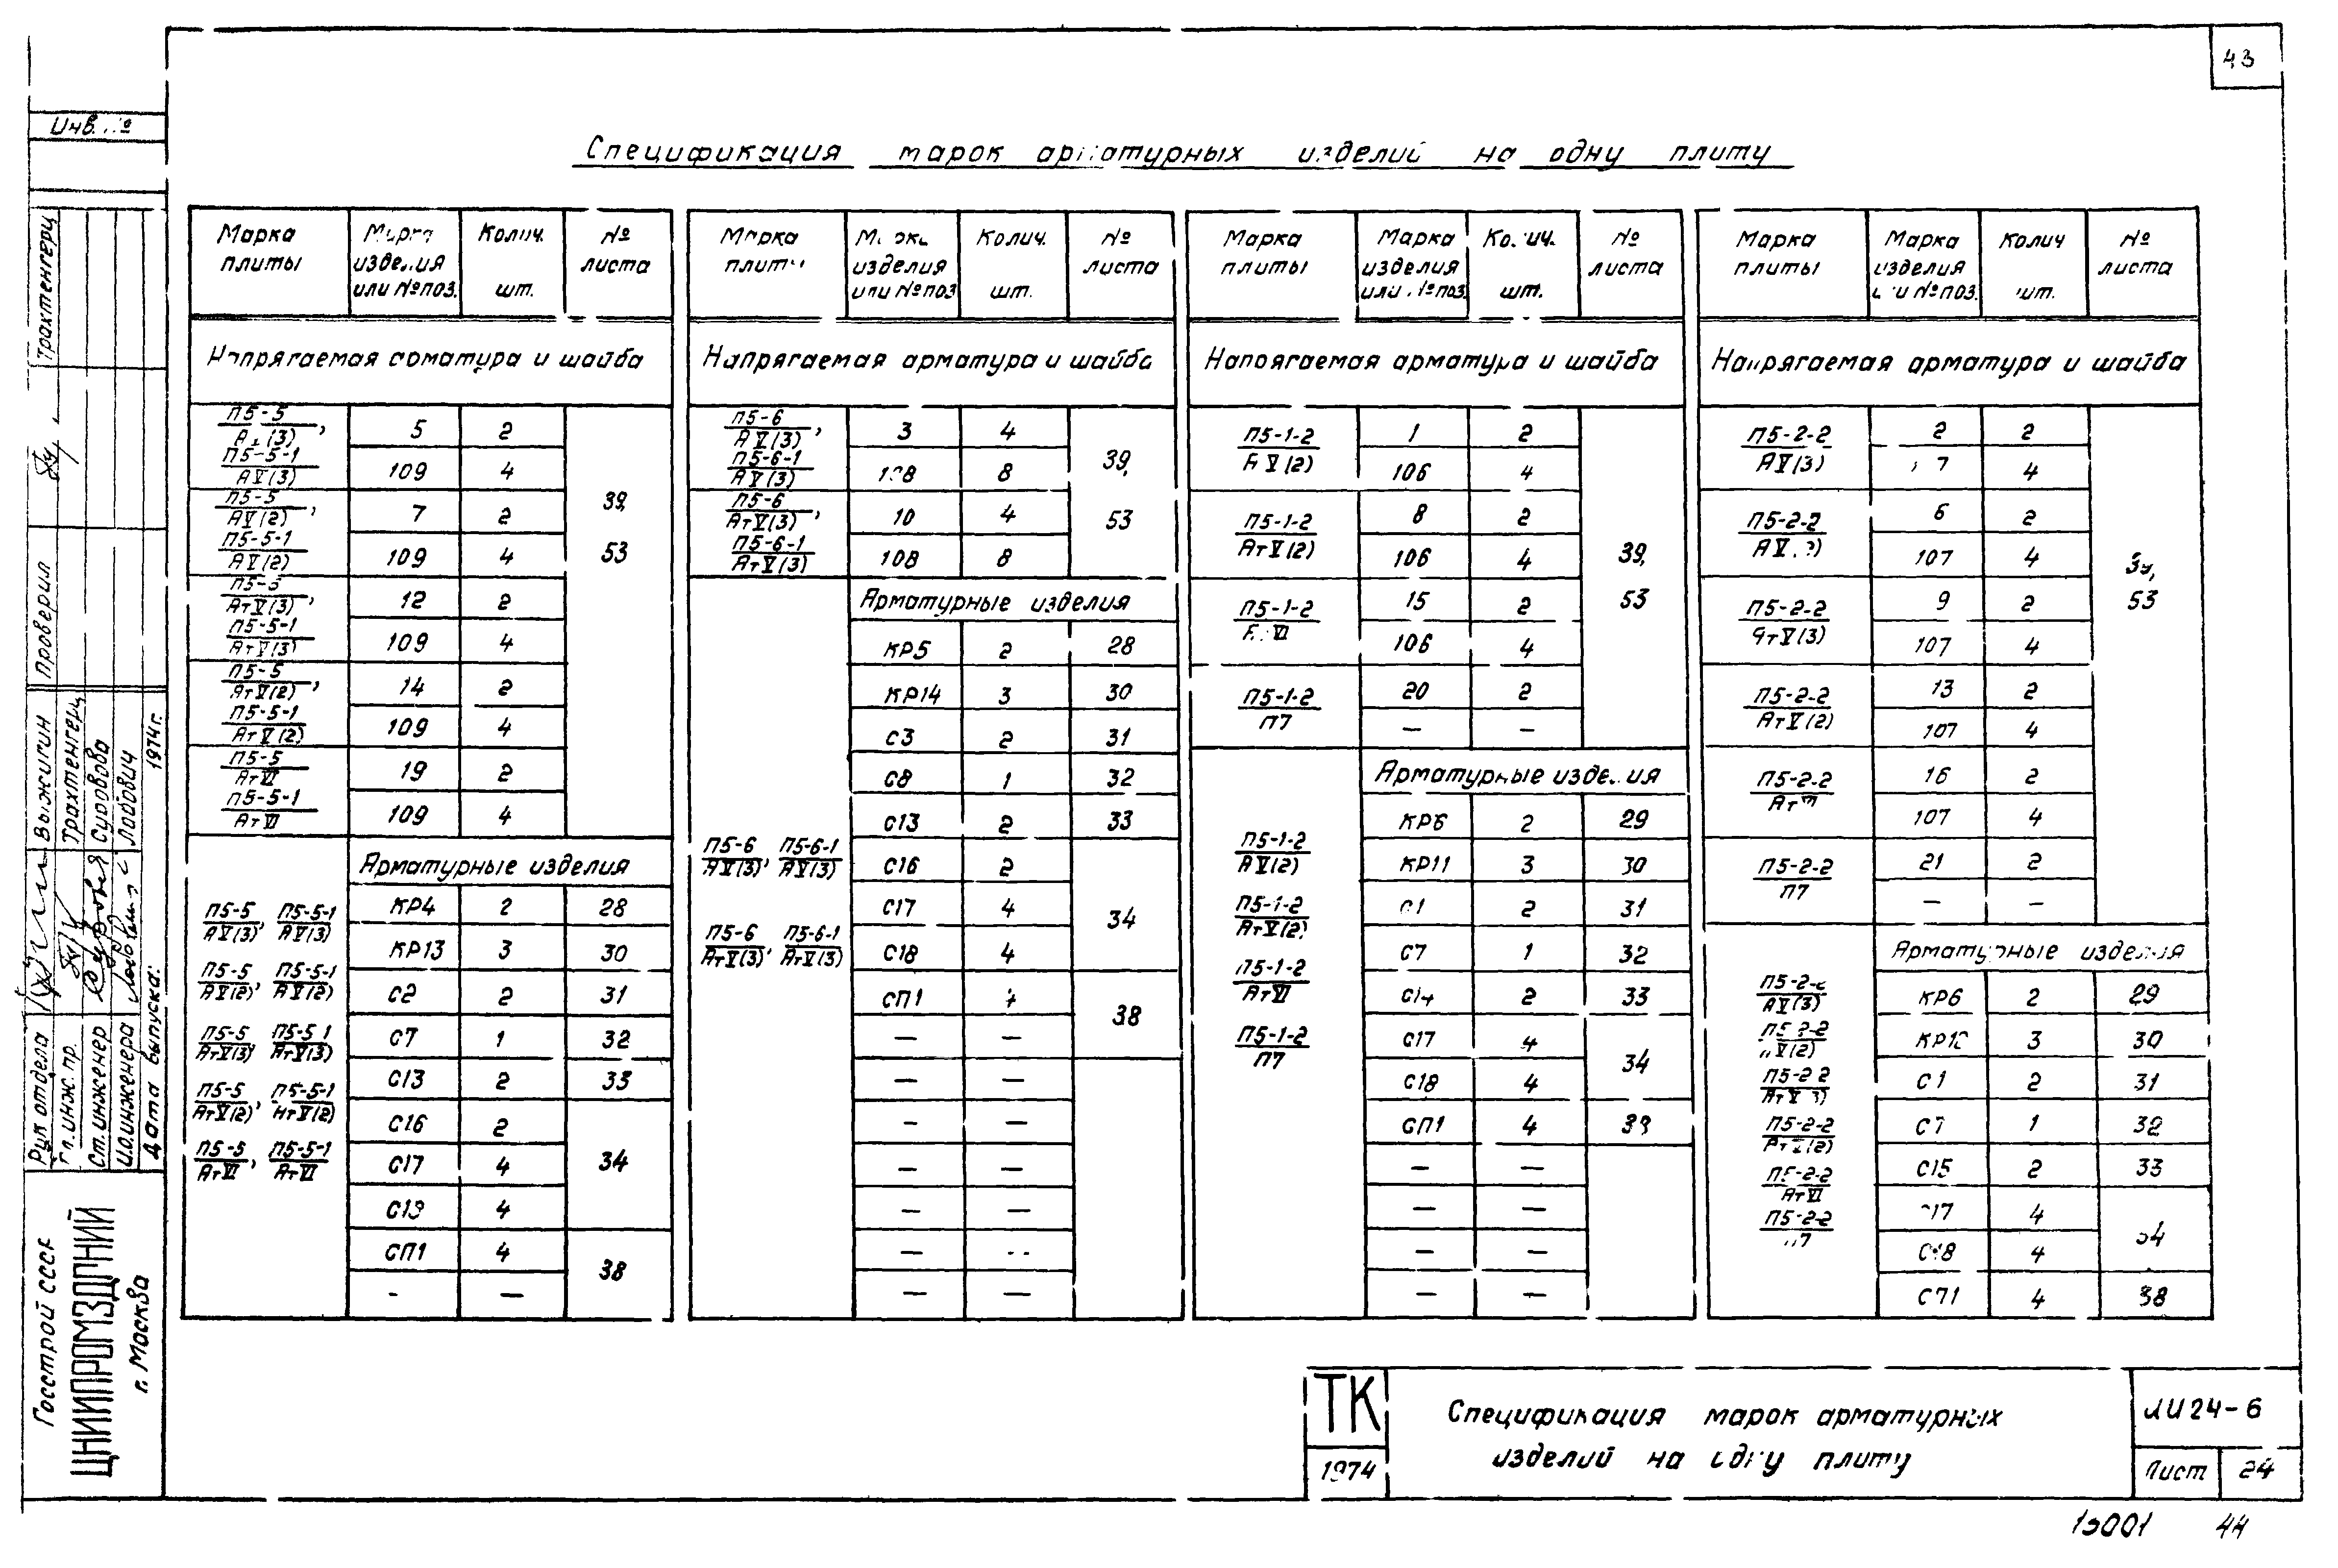 43
Инв. №
Спецификация марок арматурных изделий на одну плиту
Марка плиты | Марка изделия или № поз. | Колич. шт. | № листа
Напрягаемая арматура и шайба
П5-5/АV(3), П5-5-1/АV(3) | 5 | 2 | 39, 53
109 | 4
П5-5/АV(2), П5-5-1/АV(2) | 7 | 2
109 | 4
П5-5/АтV(3), П5-5-1/АтV(3) | 12 | 2
109 | 4
П5-5/АтV(2), П5-5-1/АтV(2) | 14 | 2
109 | 4
П5-5/АтVI П5-5-1/АтVI | 19 | 2
109 | 4
Арматурные изделия
П5-5/АV(3), П5-5-1/АV(3)
П5-5/АV(2), П5-5-1/АV(2)
П5-5/АтV(3), П5-5-1/АтV(3)
П5-5/АтV(2), П5-5-1/АтV(2)
П5-5/АтVI, П5-5-1/АтVI
КР4 | 2 | 28
КР13 | 3 | 30
С2 | 2 | 31
С7 | 1 | 32
С13 | 2 | 33
С16 | 2 | 34
С17 | 4
4
СП1 | 4 | 38
- | —
Марка плиты | Марка изделия или № поз | Колич. шт. | № листа
Напрягаемая арматура и шайба
П5-6/АV(3), П5-6-1/АV(3) | 3 | 4 | 39, 53
108 | 8
П5-6/АтV(3), П5-6-1/АтV(3) | 10 | 4
108 | 8
Арматурные изделия
П5-6/АV(3), П5-6-1/АV(3)
П5-6/АтV(3), П5-6-1/АтV(3)
КР5 | 2 | 28
КР14 | 3 | 30
С3 | 2 | 31
С8 | 1 | 32
С13 | 2 | 33
С16 | 2 | 34
С17 | 4
С18 | 4
СП1 | 38
— | —
— | —
— | —
— | —
— | —
— | —
— | —
Марка плиты | Марка изделия или № поз. | Колич. шт. | № листа
Напрягаемая арматура и шайба
П5-1-2/АV(2) | 1 | 2 | 39, 53
106 | 4
П5-1-2/АтV(2) | 8 | 2
106 | 4
П5-1-2/АтVI | 15 | 2
106 | 4
П5-1-2/П7 | 20 | 2
— | —
Арматурные изделия
П5-1-2/АV(2)
П5-1-2/АтV(2)
П5-1-2/АтVI
П5-1-2/П7
КР6 | 2 | 29
КР11 | 3 | 30
С1 | 2 | 31
С7 | 1 | 32
С14 | 2 | 33
С17 | 4 | 34
С18 | 4
СП1 | 4 | 38
— | —
— | —
— | —
— | —
Марка плиты | Марка изделия или № поз. | Колич шт. | № листа
Напрягаемая арматура и шайба
П5-2-2/АV(3) | 2 | 2 | 39, 53
107 | 4
П5-2-2 | 6 | 2
107 | 4
П5-2-2/АтV(3) | 9 | 2
107 | 4
П5-2-2/АтV(2) | 13 | 2
107 | 4
П5-2-2/АтVI | 16 | 2
107 | 4
П5-2-2/П7 | 21 | 2
— | —
Арматурные изделия
П5-2-2/АV(3)
П5-2-2/АV(2)
П5-2-2/АтV(3)
П5-2-2/АтV(2)
П5-2-2/АтVI
П5-2-2/П7
КР6 | 2 | 29
3 | 30
С1 | 2 | 31
С7 | 1 | 32
С15 | 2 | 33
С17 | 4 | 34
С18 | 4
СП1 | 4 | 38
Проверил Трахтенгерц
Рук отдела Выжигин
Гл. инж. пр. Трахтенгерц
Ст. инженер Суровова
И.о. инженера
Дата выпуска: 1974г.
Госстрой СССР
ЦНИИПРОМЗДАНИЙ
г. Москва
ТК
1974
Спецификация марок арматурных
изделий на одну плиту
ИИ24-6
Лист 24
44